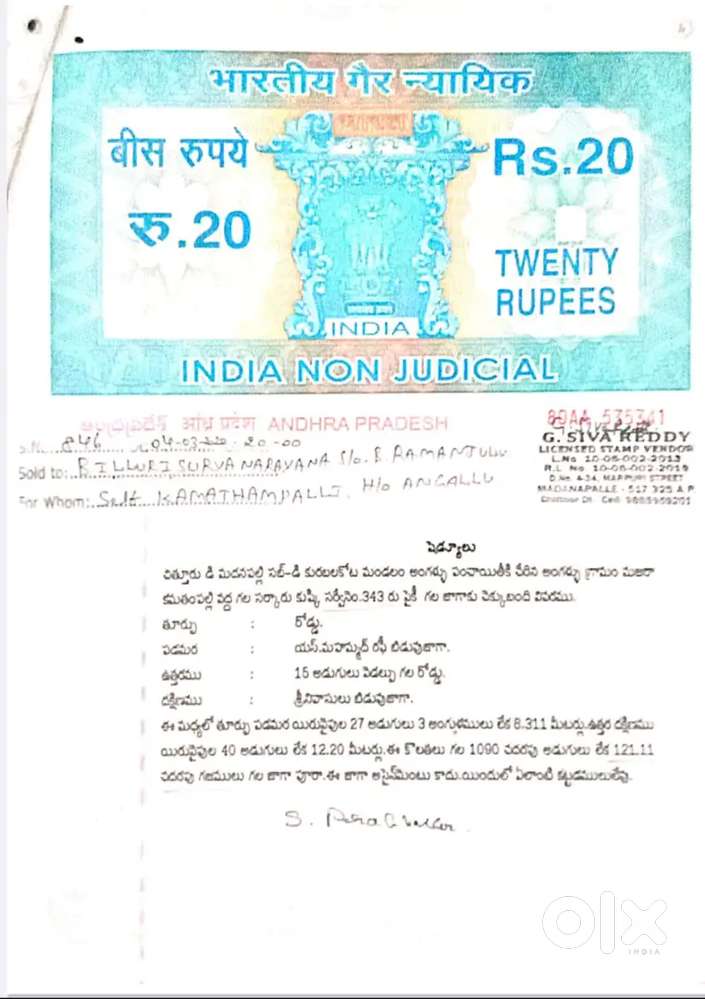 भारतीय गैर न्यायिक
बीस रुपये
Rs.20
रु.20
TWENTY
RUPEES
INDIA
INDIA NON JUDICIAL
ఆంధ్రప్రదేశ్ आंध्र प्रदेश ANDHRA PRADESH
80AA 535341
S.No. 846 04-03-20-00
G. SIVA REDDY
LICENSED STAMP VENDOR
L.No 10-06-002-2013
R.L No 10-06-002-2019
D.No. 4-34, MARPURI STREET
MADANAPALLE - 517 325 A P
Chittoor Dt. Cell 9885959201
Sold to: BILLURI SURYA NARAYANA S/o. B. RAMANJULU
For Whom: Self KAMATHAMPALLI, H/o ANGALLU
షెడ్యూలు
చిత్తూరు డి మదనపల్లి సబ్-డి కురబలకోట మండలం అంగళ్ళు పంచాయితీకి చేరిన అంగళ్ళు గ్రామం మజరా
కమతంపల్లి వద్ద గల సర్కారు కుష్కి సర్వేనెం.343 రు పైకీ గల జాగాకు చెక్కుబంది వివరము.
తూర్పు : రోడ్డు.
పడమర : యస్.మహమ్మద్ రఫీ బిడువుజాగా.
ఉత్తరము : 15 అడుగులు వెడల్పు గల రోడ్డు.
దక్షిణము : శ్రీనివాసులు బిడువుజాగా.
ఈ మధ్యలో తూర్పు పడమర యిరువైపుల 27 అడుగులు 3 అంగుళములు లేక 8.311 మీటర్లు.ఉత్తర దక్షిణము
యిరువైపుల 40 అడుగులు లేక 12.20 మీటర్లు.ఈ కొలతలు గల 1090 చదరపు అడుగులు లేక 121.11
చదరపు గజములు గల జాగా పూరా.ఈ జాగా అసైన్‌మెంటు కాదు.యిందులో ఏలాంటి కట్టడములులేవు.
S.
olx
INDIA